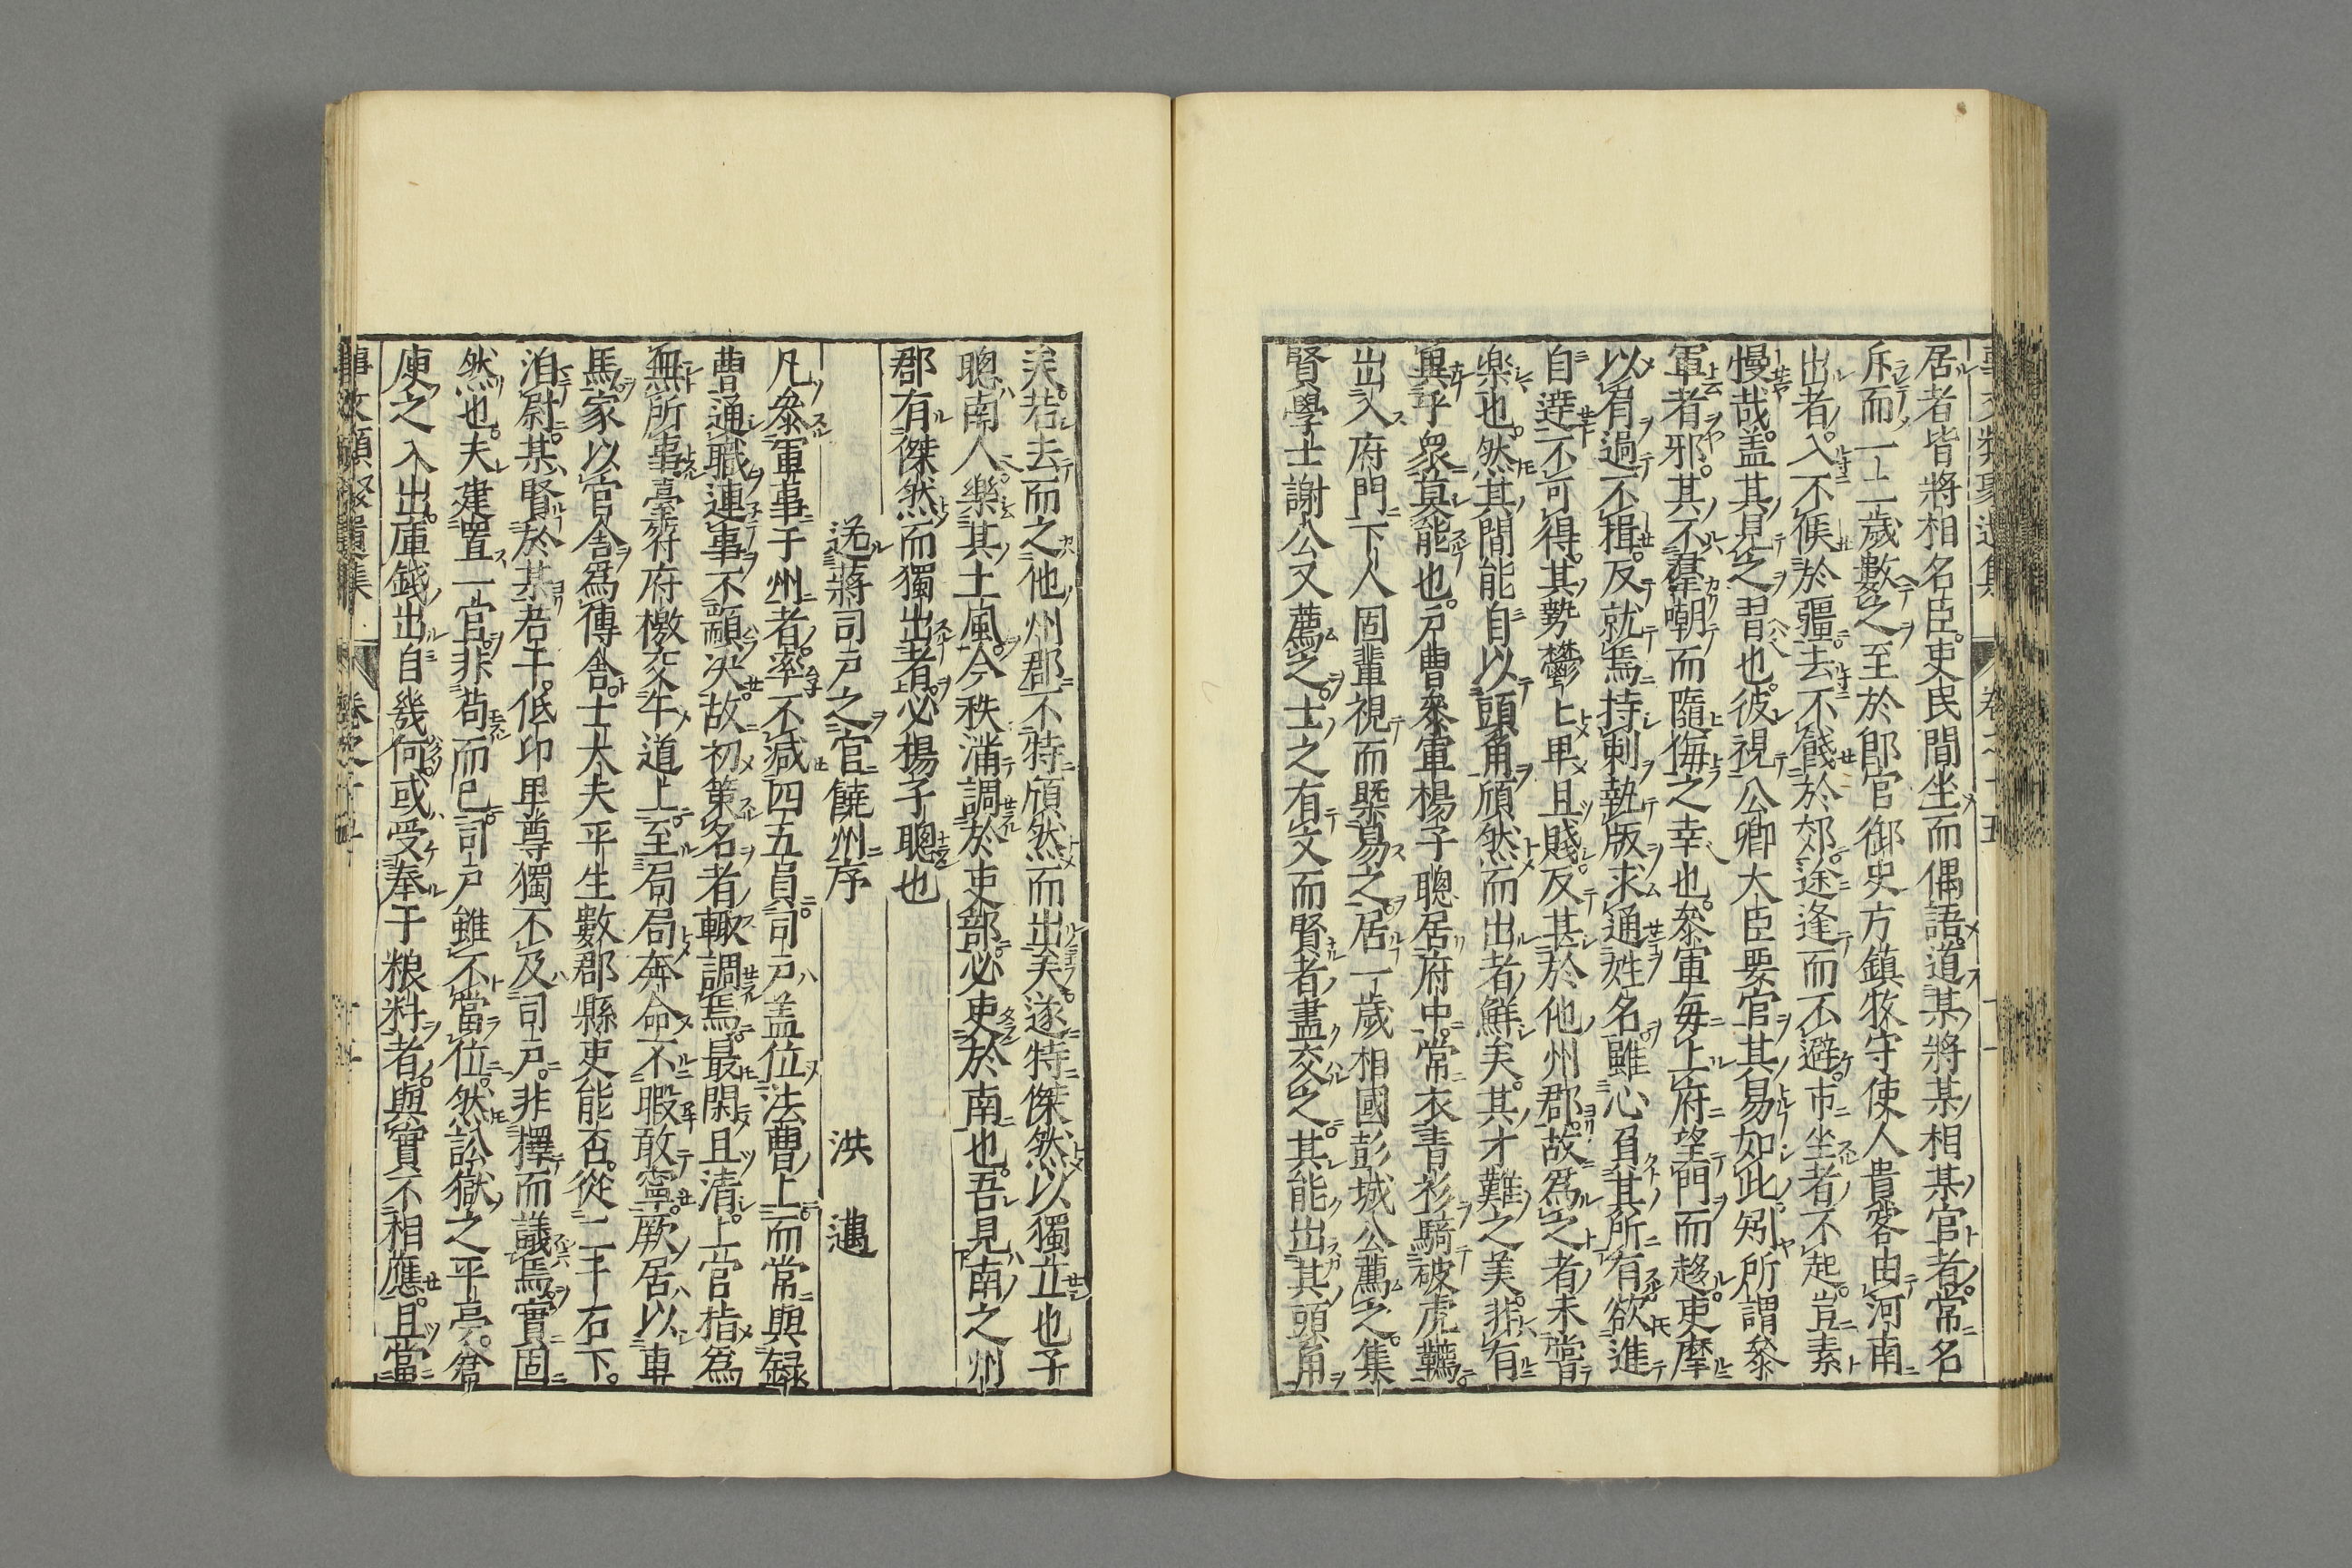 居者皆將相名臣吏民間坐而偶語道某將某相某官者常名
斥而一二歲數之至於郎官御史方鎮牧守使人貴客由河南
出者入不候於疆去不餞於郊途逢而不避市坐者不起豈素
慢哉盖其見之習也彼視公卿大臣要官其易如此矧所謂叅
軍者邪其不羣嘲而隨侮之幸也叅軍每上府望門而趍吏摩
以肴過不揖反就焉持刺執版求通姓名雖心負其所有欲進
自達不可得其勢鬱上卑且賤反甚於他州郡故爲之者未甞
楽也然其間能自以頭角頎然而出者鮮矣其才難之美非有
異乎衆莫能也戸曹叅軍楊子聰居府中常衣青衫騎破虎韉
出入府門下人固輩視而槩易之居一歲相國彭城公薦之集
賢學士謝公又薦之士之有文而賢者盡交之其能出其頭角
矣若去而之他州郡不特頎然而出矣遂特傑然以獨立也子
聰南人樂其土風今秩滿調於吏部必吏於南也吾見南之州
郡有傑然而獨出者必楊子聰也
送蔣司戸之官饒州序 洪邁
凡叅軍事于州者率不減四五員司戸盖位法曹上而常與録
曹通職連事不顓决故初策名者輙調焉最閑且清上官指爲
無所事臺府府檄交午道上至局局奔命不暇敢寧厥居以車
馬家以官舎爲傳舎士大夫平生數郡縣吏能否從二千石下
洎尉某賢於某若干低卬卑尊獨不及司戸非擇而議焉實固
然也夫建置一官非苟而已司戸雖不當位然訟獄之平亭倉
庾之入出庫錢出自幾何或受奉于粮料者與實不相應且當
事文類聚遺集 卷之十五